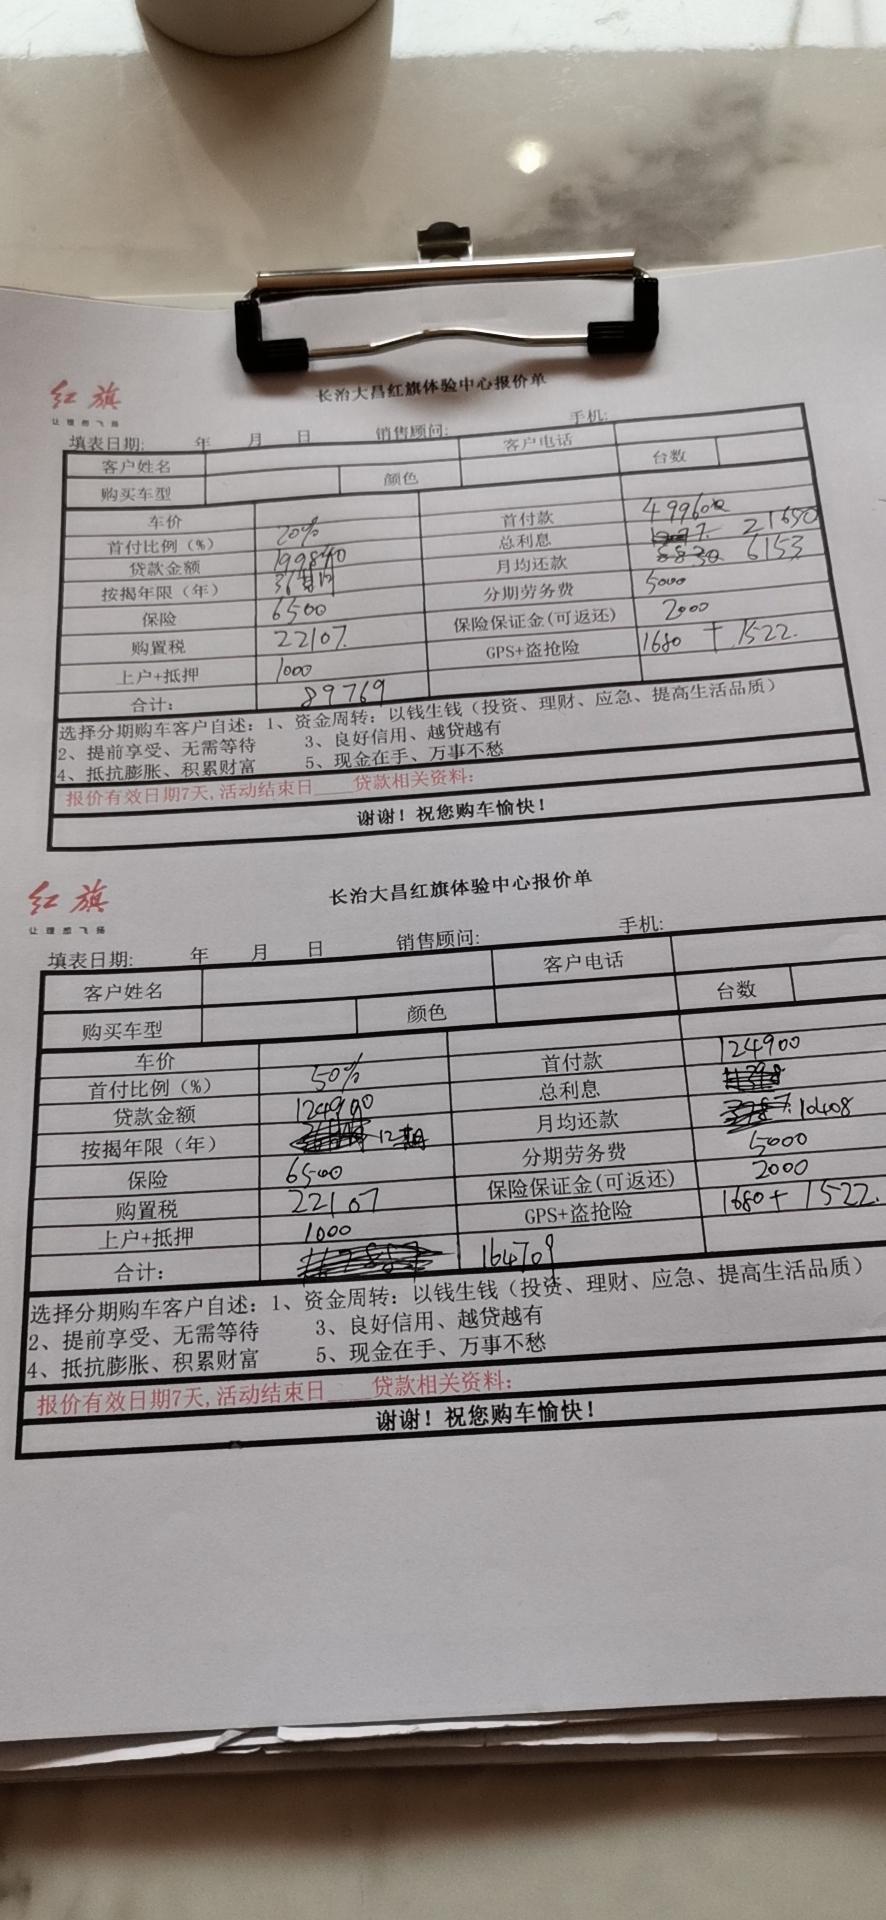 红旗
让理想飞扬
长治大昌红旗体验中心报价单
填表日期: 年 月 日 销售顾问: 手机:
客户姓名 客户电话
购买车型 颜色 台数
车价 首付款 49960
首付比例（%） 20% 总利息 21650
贷款金额 199840 月均还款 6153
按揭年限（年） 36期 分期劳务费 5000
保险 6500 保险保证金(可返还) 2000
购置税 22107 GPS+盗抢险 1680 + 1522.
上户+抵押 1000
合计： 89769
选择分期购车客户自述：1、资金周转：以钱生钱（投资、理财、应急、提高生活品质）
2、提前享受、无需等待 3、良好信用、越贷越有
4、抵抗膨胀、积累财富 5、现金在手、万事不愁
报价有效日期7天,活动结束日____贷款相关资料：
谢谢！祝您购车愉快！
红旗
让理想飞扬
长治大昌红旗体验中心报价单
填表日期: 年 月 日 销售顾问: 手机:
客户姓名 客户电话
购买车型 颜色 台数
车价 首付款 124900
首付比例（%） 50% 总利息
贷款金额 124900 月均还款 10408
按揭年限（年） 12期 分期劳务费 5000
保险 6500 保险保证金(可返还) 2000
购置税 22107 GPS+盗抢险 1680+1522.
上户+抵押 1000
合计： 164709
选择分期购车客户自述：1、资金周转：以钱生钱（投资、理财、应急、提高生活品质）
2、提前享受、无需等待 3、良好信用、越贷越有
4、抵抗膨胀、积累财富 5、现金在手、万事不愁
报价有效日期7天,活动结束日____贷款相关资料：
谢谢！祝您购车愉快！